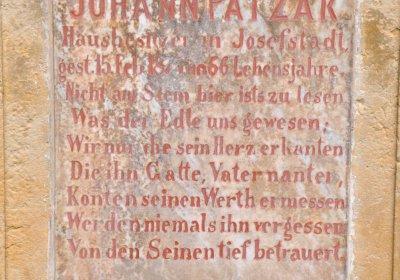 JOHANN PATZAK
Hausbesitzer in Josefstadt
gest. 15. Feb. 18 im 66 Lebensjahre.
Nicht am Stein hier ists zu lesen
Was der Edle uns gewesen;
Wir nur die sein Herz erkanten
Die ihn Gatte, Vater nanten,
Konten seinen Werth ermessen
Werden niemals ihn vergessen
Von den Seinen tief betrauert.